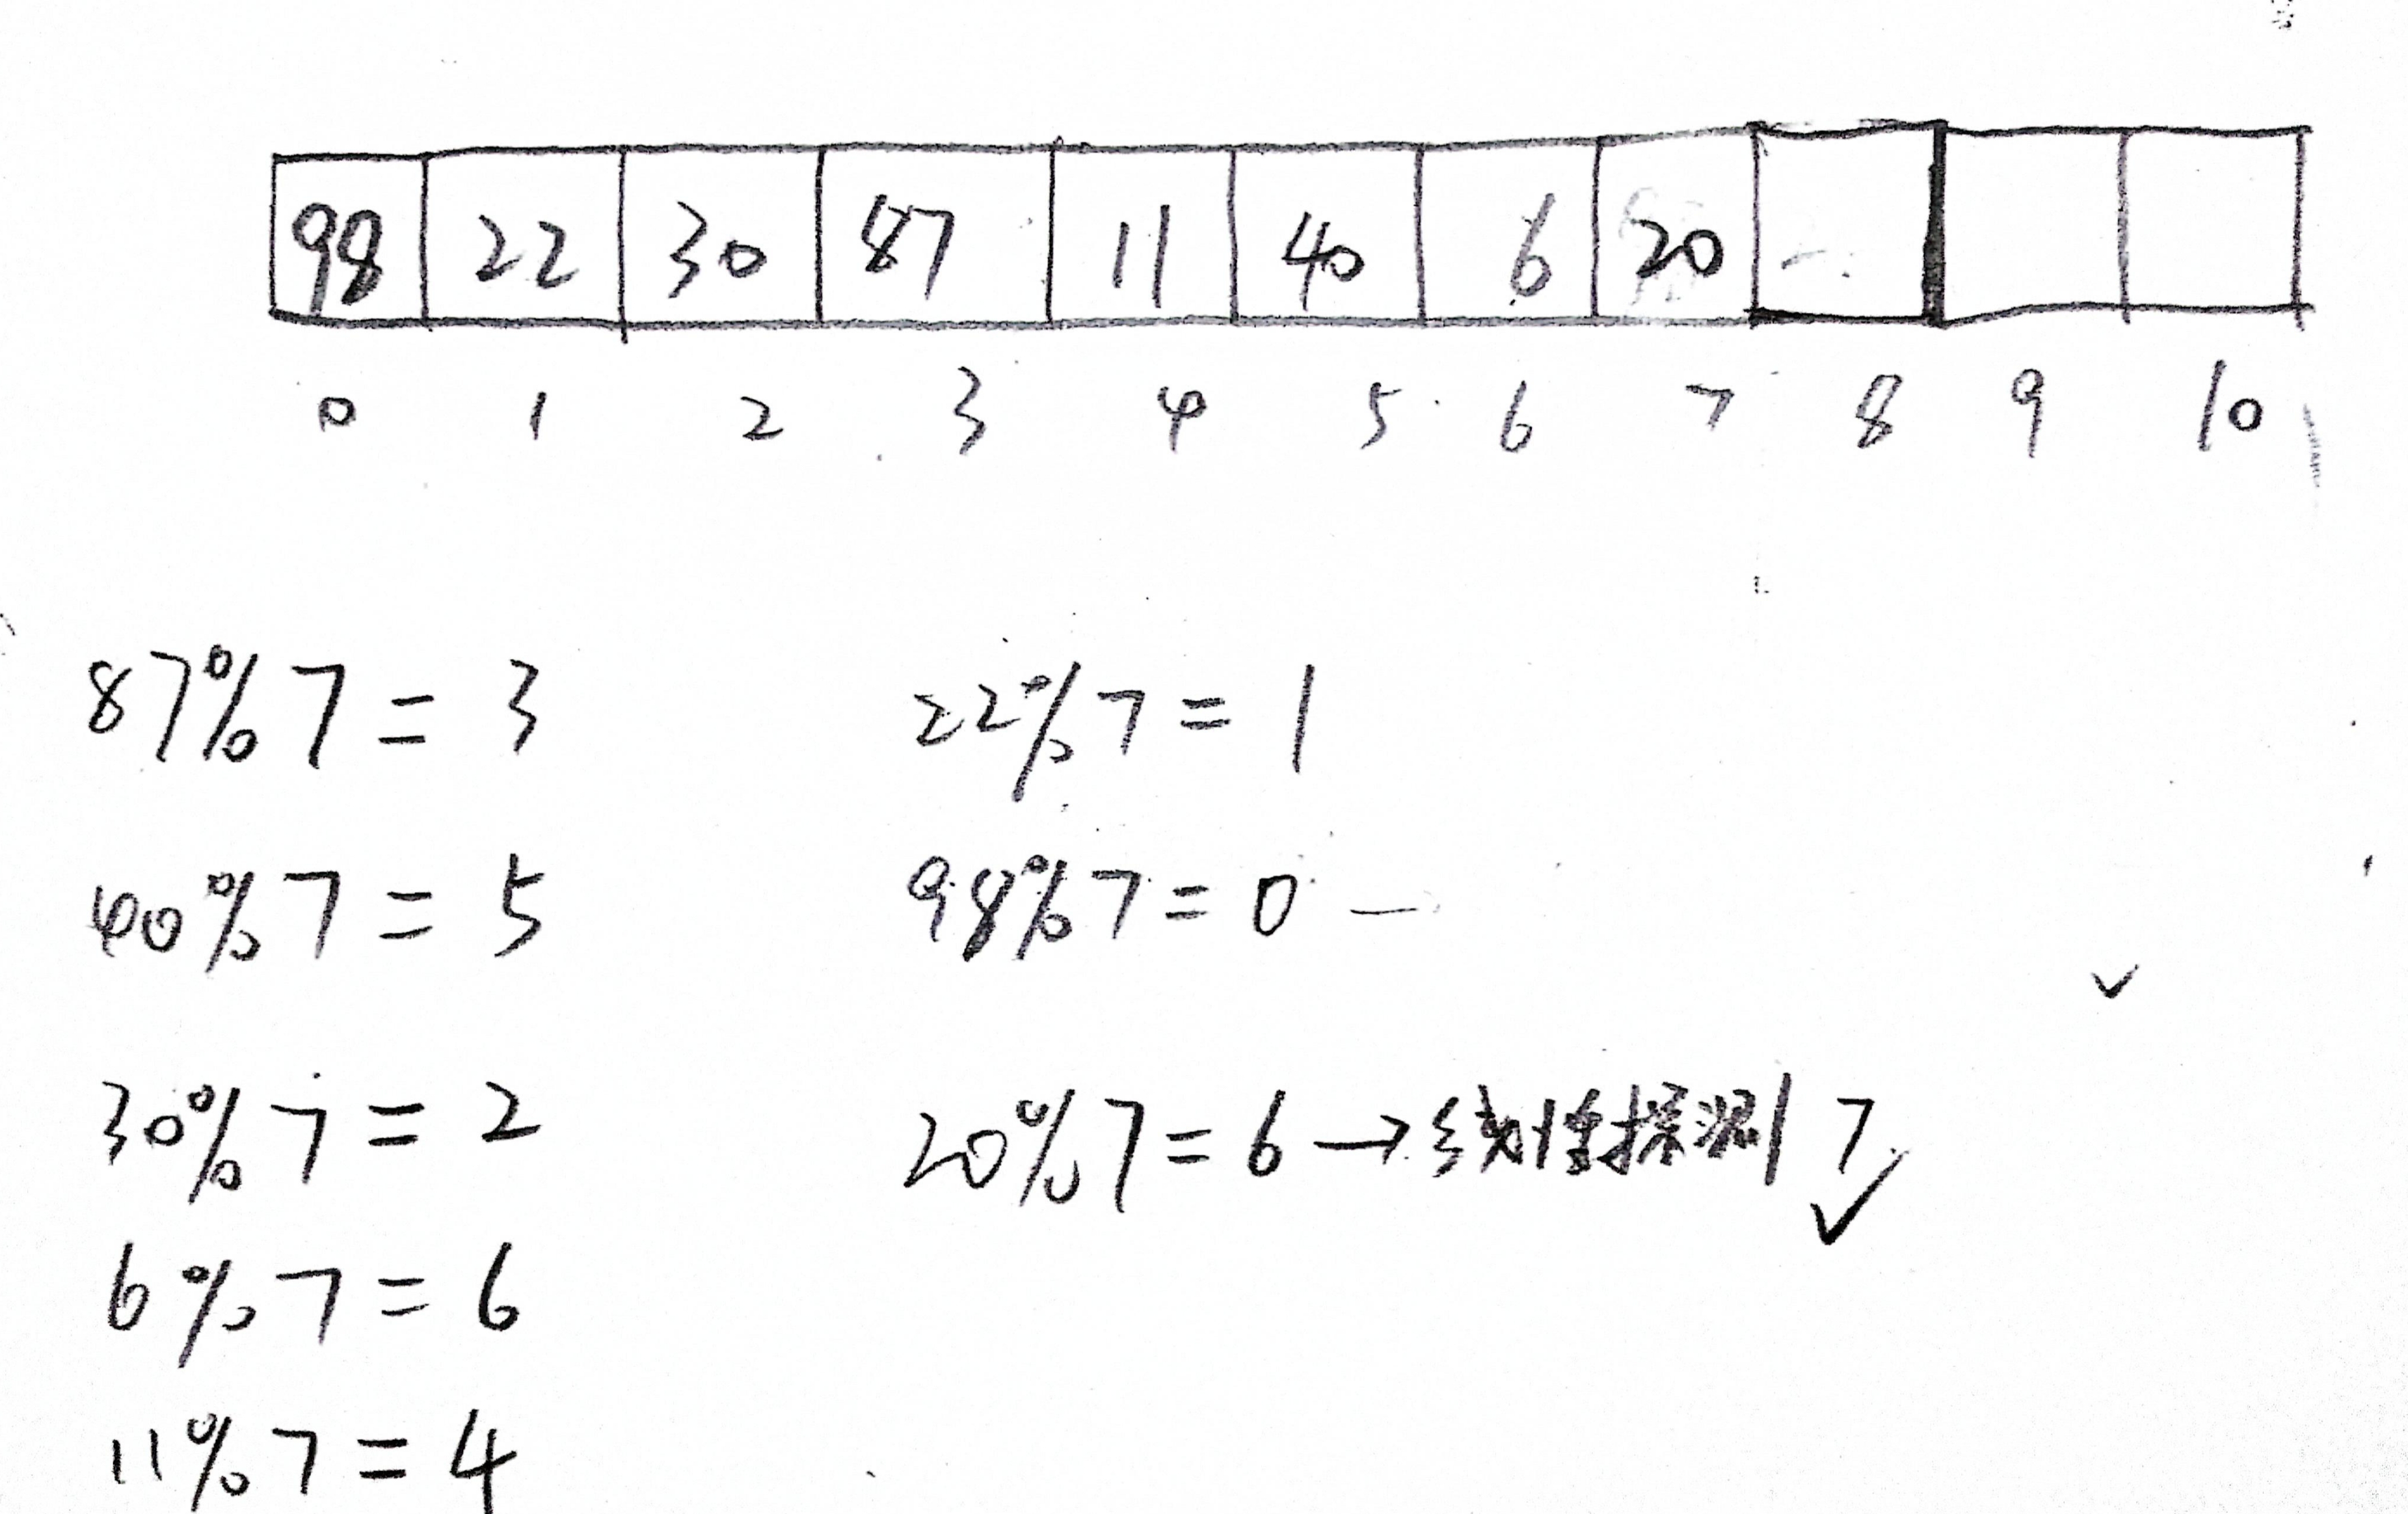 98 22 30 87 11 40 6 20
0 1 2 3 4 5 6 7 8 9 10
87%7=3
40%7=5
30%7=2
6%7=6
11%7=4
22%7=1
98%7=0 —
20%7=6→线性探测 7✓
✓